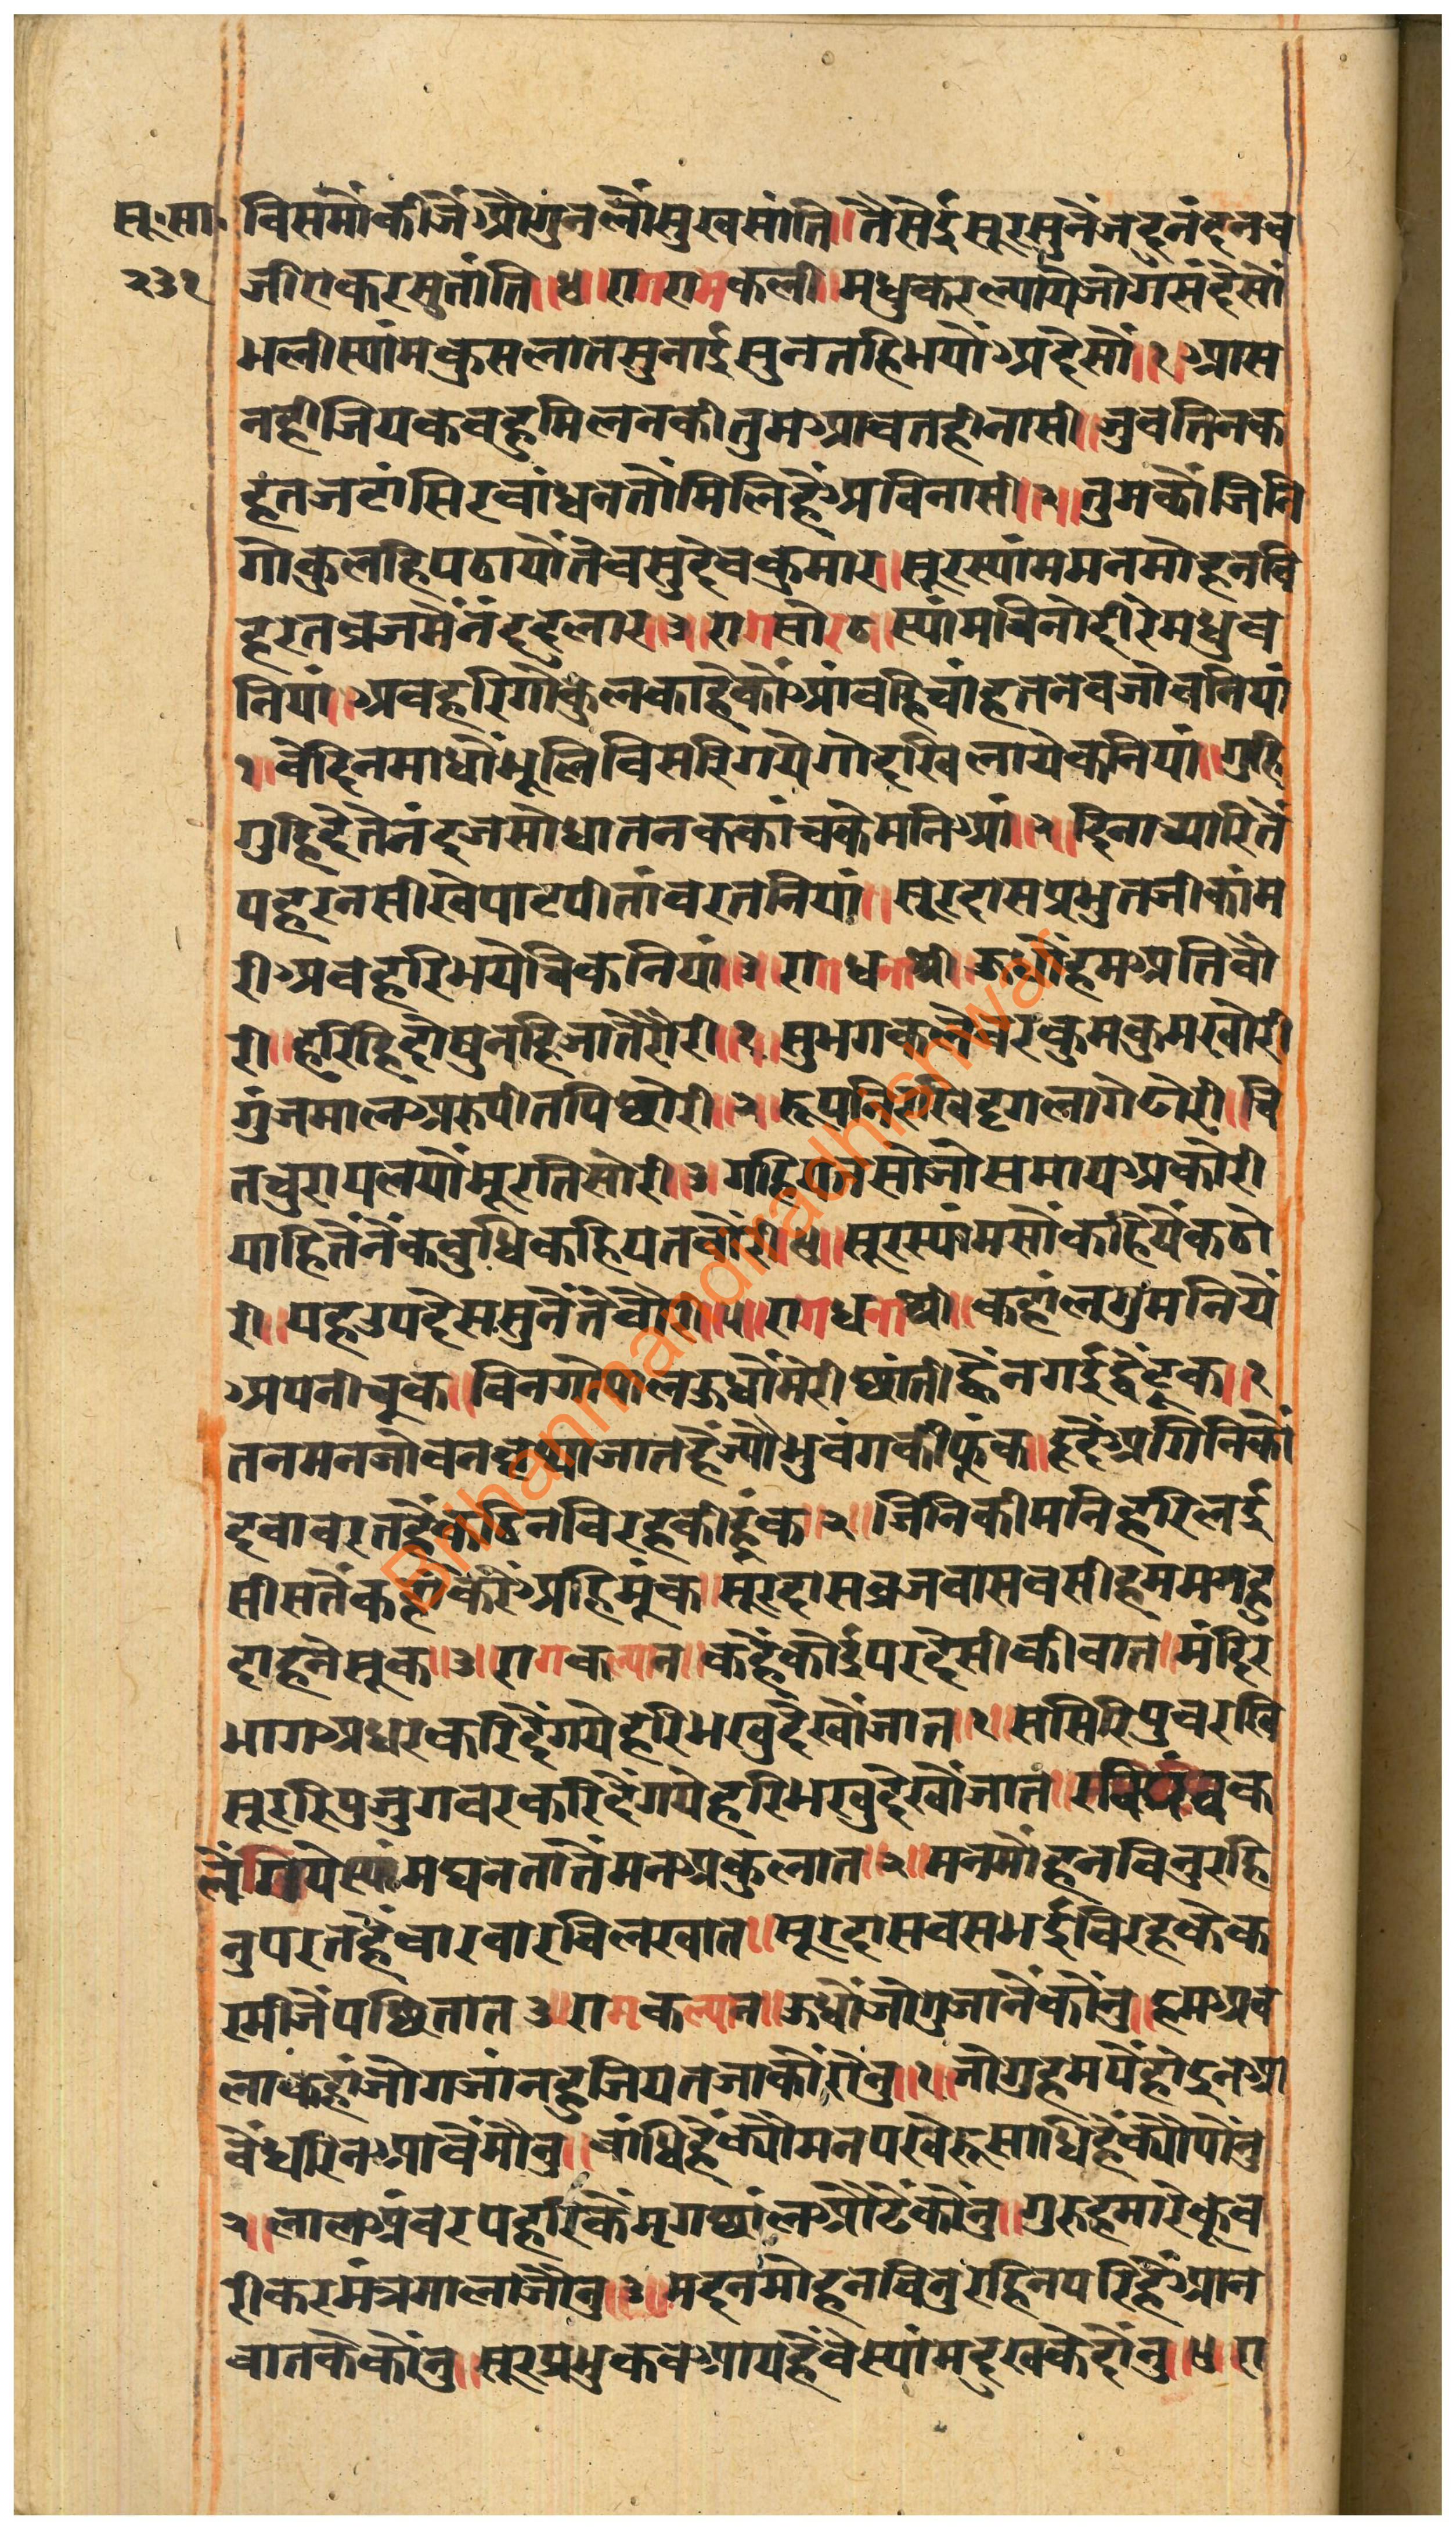 सू॰सा॰ विसमौंकीजैंऔगुनलौंसुखसांति॥तैसेईसूरसुनैंजदुनंदनव
२३१ जीराकरसुतांति॥४॥रागरामकली॥मधुकरल्यायेजोगसंदेसौं
भलीस्यांमकुसलातसुनाईसुनतहिभयौअंदेसौ॥१॥आस
नहीजियकबहुमिलनकीतुमआवतहीनासी॥जुवतिनक
हतजटांसिरवांधनतौंमिलिहैंअविनासी॥२॥तुमकौजिनि
गोकुलहिपठायौतेवसुदेवकुमार॥सूरस्यांममनमोहनवि
हरतव्रजमैंनंददुलार॥३॥रागसोरठ॥स्यांमविनोदीरेमधुव
नियां॥अवहरिगौकुलकाहेकौंआंवहिचांहतनवजोवनियां
१॥वेदिनमाधौंभूलिविसरिगयेगोदखिलायेकनियां॥गुहि
गुहिदेतेनंदजसोधातनककांचकेमनिआं॥२॥दिनाच्यारितें
पहरनसीखेपाटपीतांवरतनियां॥सूरदासप्रभुतजीकांम
रीअवहरिभयेचिकनियां॥३॥रागधनाश्री॥ऊधौंहमअतिवौ
री॥हरिहिदोषुनहिजातेंरोरी॥१॥सुभगकलेवरकुमकुमखोरी
गुंजमालअरुपीतपिछोरी॥२॥रूपनिरखिदृगलागेढोरी॥चि
तचुरायलयौंमूरतिसोरी॥३॥गहियतसोजोसमायअकोरी
याहितैंनैंकवुधिकहियतवौरी॥४॥सूरस्यांमसौंकहियेंकठो
री॥यहउपदेससुनैंतेंवौरी॥५॥रागधनांश्री॥कहांलगुमनियें
अपनीचूक॥विनगोपालऊधौंमेरीछांतीह्वैनगईद्वैटूक॥१
तनमनजोवनवृथाजातहैज्यौंभुवंगकीफूंक॥हृदेंअगिनिकौ
दवावरतहैकठिनविरहकीहूंक॥२॥जिनिकीमनिहरिलई
सीसतेंकहांकरेंअहिमूंक॥सूरदासव्रजवासवसीहममनहु
दाहनेसूक॥३॥रागकल्यान॥कहैंकोईपरदेसीकीवात॥मंदिर
भागअधरकरिदेंगयेहरिभखुदेखोंजात॥१॥ससिरिपुवरखि
सूररिपुजुगवरकरिदेंगयेहरिभखुदेखोंजात॥
लैंगयेस्यांमघनतातेंमनअकुलात॥२॥मनमोंहनविनुरहि
नुपरतहैंवारवारविलखात॥सूरदासवसभईविरहकेक
रमीजेंपछितात३॥रागकल्यान॥ऊधौंजोगुजानेंकौंनु॥हमअव
लाकहांजोगजांनहुजियतजाकौंरौंनु॥१॥जोगुहमपेंहोइनआ
वेंधरिनआवेंमौनु॥वांधिहैंक्यौंमनपखेरूसाधिहैंक्यौपौंनु
२॥लालअंवरपहरिकेंमृगछांलऔढेंकौंनु॥गुरुहमारेकूव
रीकरमंत्रमालाजौनु॥३॥मदनमोहनविनुरहिनपरिहैंआन
वातकेकौंनु॥सूरप्रभुकवआयहैंवेस्यांमदुखकेदौंनु॥४॥रा